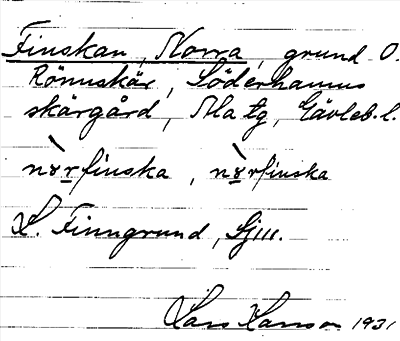 Finskan, Norra, grund O.
Rönnskär, Söderhamns
skärgård, Ala tg, Gävleb. l.
nòrfinska, nòrfinska
S. Finngrund, Sj111.
Lars Hanson 1931